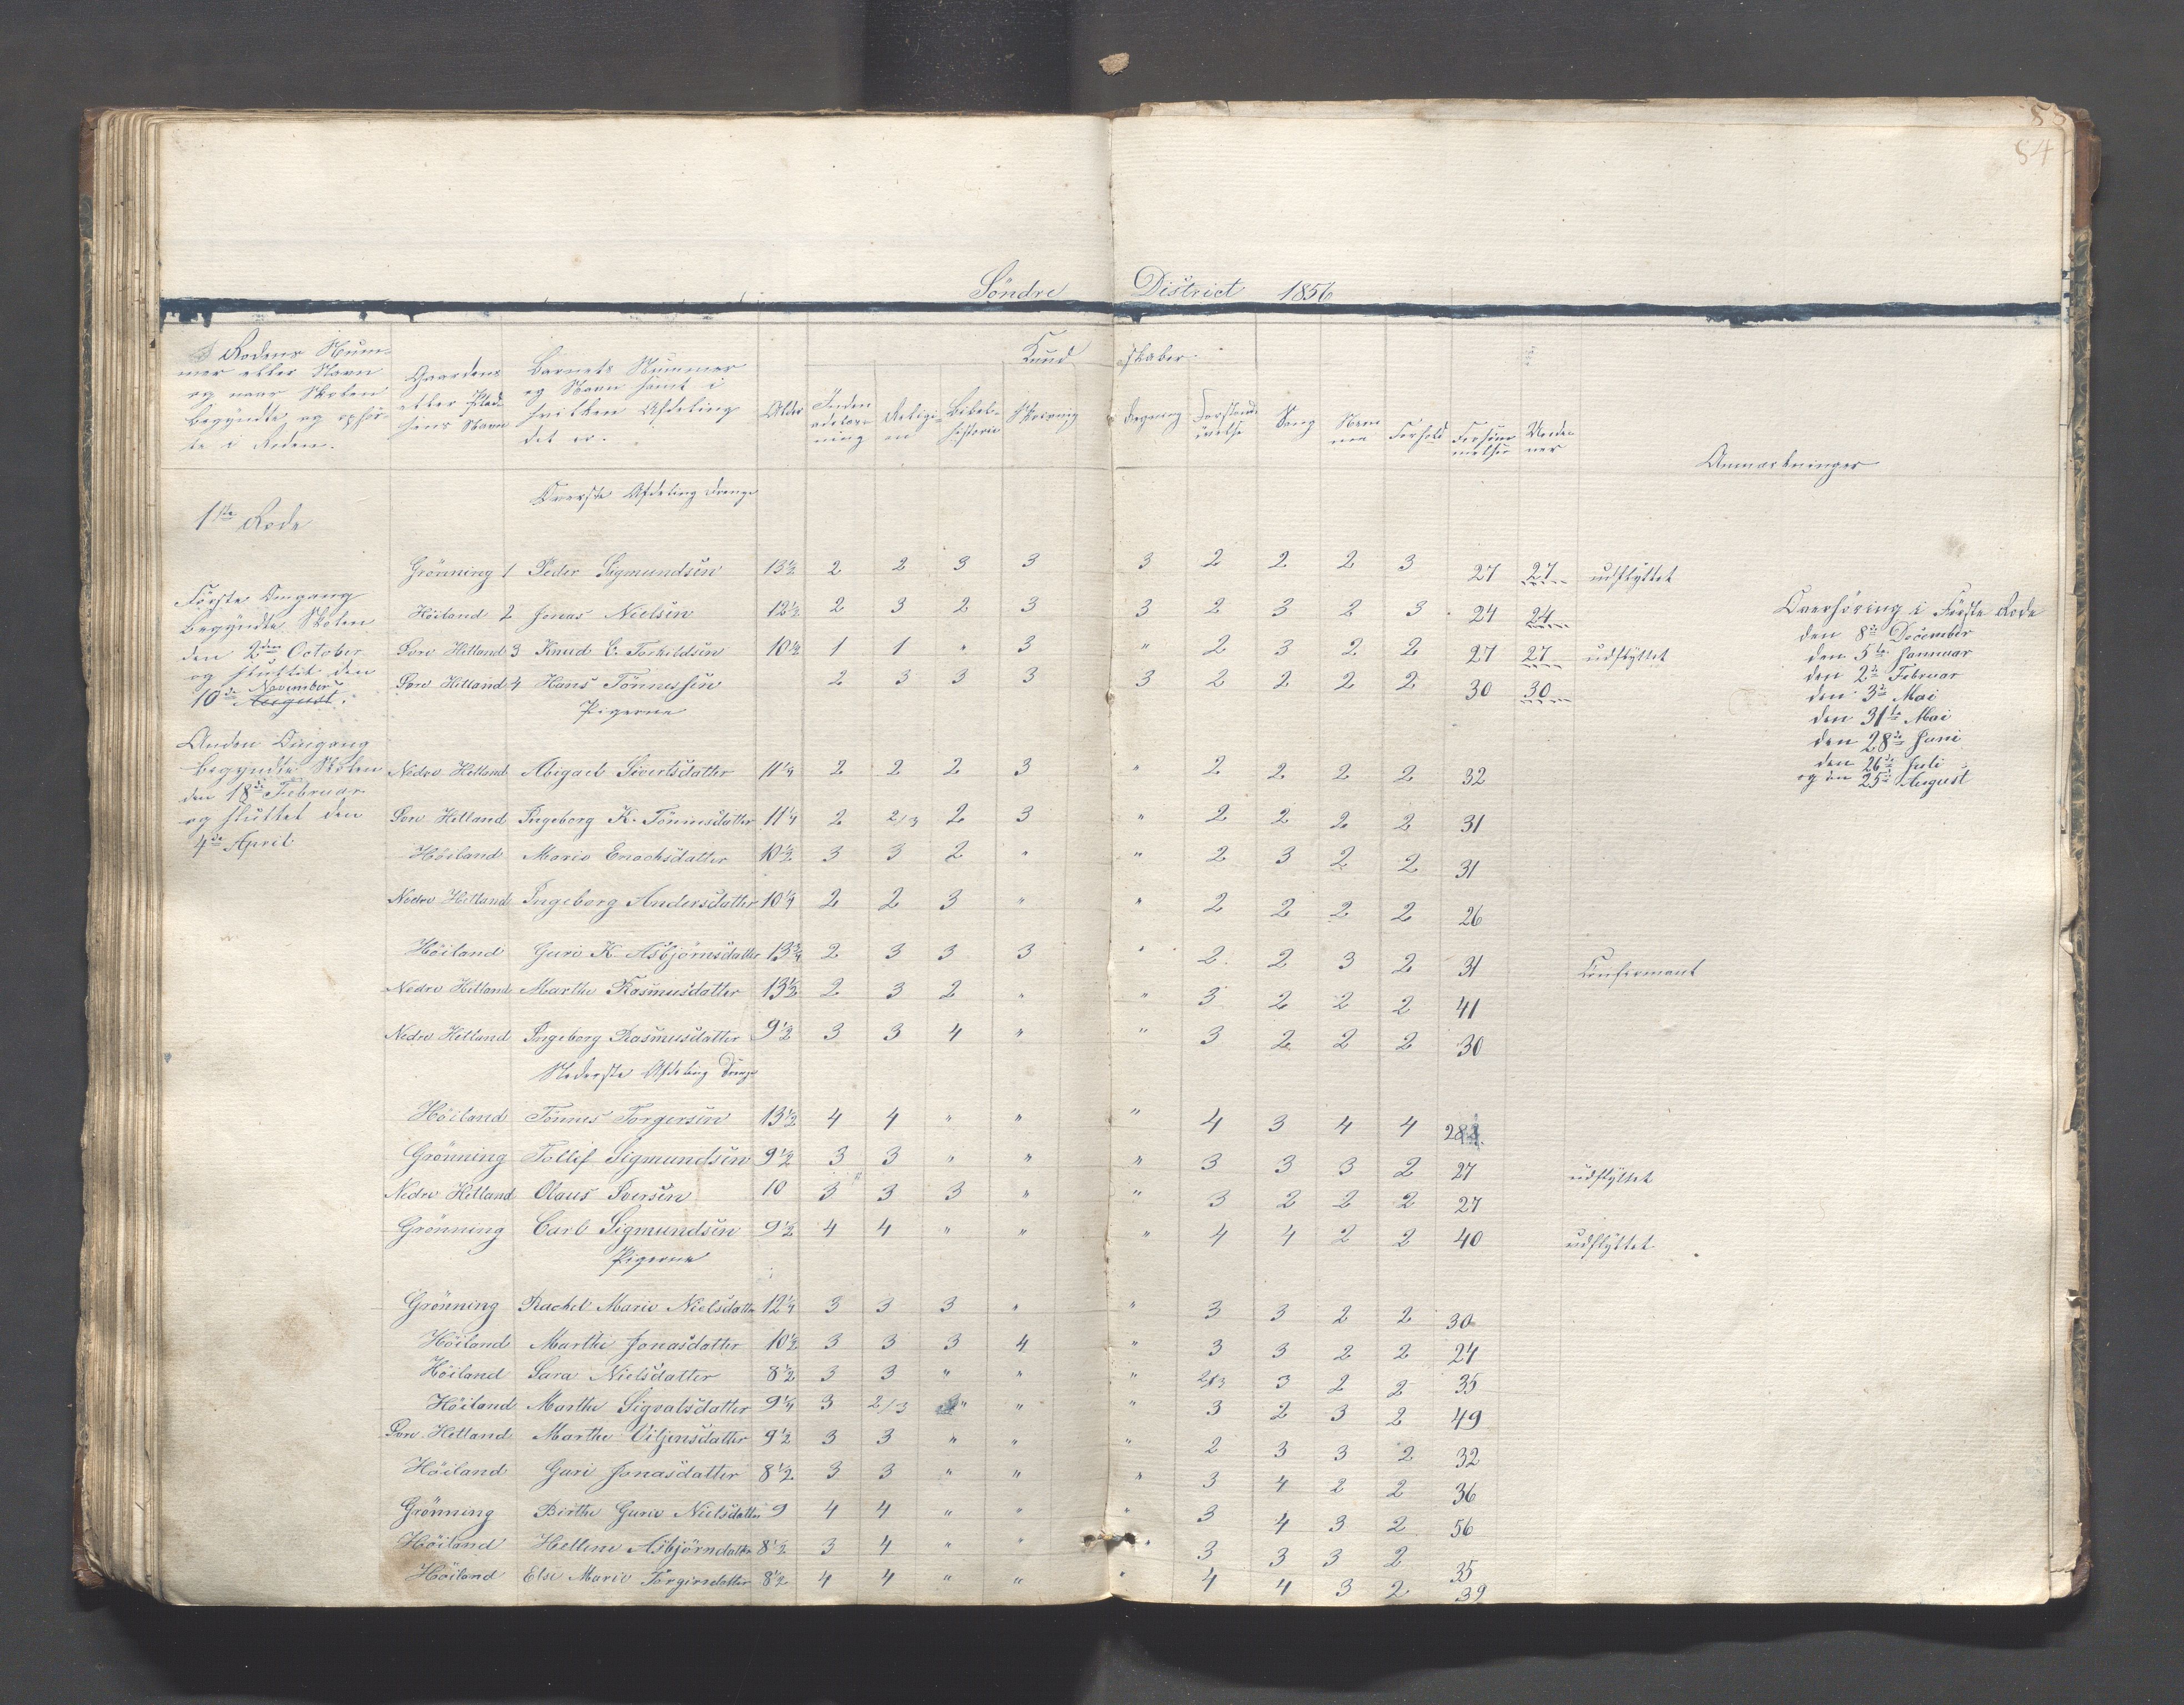 83
54
Söndre District 1856
Rodens Num-
mer eller Navn
og naar Skolen
begyndte og ophör-
te i Roden.
Gaardens
eller Plad-
sens Navn
Barnets Nummer
og Navn samt i
hvilken Afdeling
det er.
Alder
Kund skaber
Inden
adslæs-
ning
Religi-
on
Bibel-
historie
Skrivning
Regning
Forstands
övelse
Sang
Nem
me
Forhold
Forsöm-
melser
Anmærkninger
1ste Rode
Överste Afdeling Drenge
Grönning 1 Peder Sigmundsen 13½ 2 2 3 3 3 2 2 2 3 27 27 udflyttet
Höiland 2 Jonas Nielsen 12½ 2 3 2 3 3 2 3 2 3 24 24
Övre Hetland 3 Knud E. Torkildsen 10½ 1 1 " 3 " 2 3 2 2 27 27 udflyttet
Övre Hetland 4 Hans Tönnessen 2 3 3 3 3 2 2 2 2 30 30
Pigerne
Nedre Hetland Abigael Sivertsdatter 11¼ 2 2 2 3 " 2 2 2 2 32
Övre Hetland Ingeborg K. Tönnesdatter 11¼ 2 2/3 2 3 " 2 2 2 2 31
Höiland Marie Enochsdatter 10½ 3 3 2 " " 2 3 2 2 31
Nedre Hetland Ingeborg Andersdatter 10¼ 2 2 3 " " 2 2 2 2 26
Höiland Guri K Asbjörnsdatter 13¾ 2 3 3 3 " 2 2 3 2 31 Confirmant
Nedre Hetland Marthe Rasmusdatter 13½ 2 3 2 " " 3 2 2 2 41
Nedre Hetland Ingeborg Rasmusdatter 9½ 3 3 4 " " 3 2 2 2 30
Nederste Afdeling Drenge
Höiland Tönnes Torgersen 13½ 4 4 " " " 4 3 4 4 28
Grönning Tollif Sigmundsen 9½ 3 3 " " " 3 3 3 2 27 udflyttet
Nedre Hetland Olaus Iversen 10 3 3 3 " " 3 2 2 2 27
Grönning Carl Sigmundsen 9½ 4 4 " " " 4 4 2 2 40 udflyttet
Pigerne
Grönning Rachel Marie Nielsdatter 12¼ 3 3 3 " " 3 3 2 2 30
Höiland Marthe Jonasdatter 10½ 3 3 3 4 " 3 3 2 2 24
Höiland Sara Nielsdatter 8½ 3 3 " " " 2/3 3 2 2 35
Höiland Marthe Sigvalsdatter 9¼ 3 2/3 " " " 3 2 3 2 49
Övre Hetland Marthe Viljensdatter 9½ 3 3 " " " 2 3 3 2 32
Höiland Guri Jonasdatter 8½ 3 3 " " " 3 4 2 2 36
Grönning Birthe Gurie Nielsdatter 9 4 4 " " " 3 4 3 2 56
Höiland Hellene Asbjörndatter 8½ 3 4 " " " 3 3 3 2 35
Höiland Else Marie Torgersdatter 8½ 4 4 " " " 4 4 3 2 39
Förste Omgang
begyndte Skolen
den 2den October
og sluttet den
10de November
August.
Anden Omgang
begyndte Skolen
den 18de Februar
og sluttet den
4de April
Overhöring i Förste Rode
den 8de December
den 5te Januar
den 2de Februar
den 3de Mai
den 31te Mai
den 28de Juni
den 26de Juli
og en 25de August